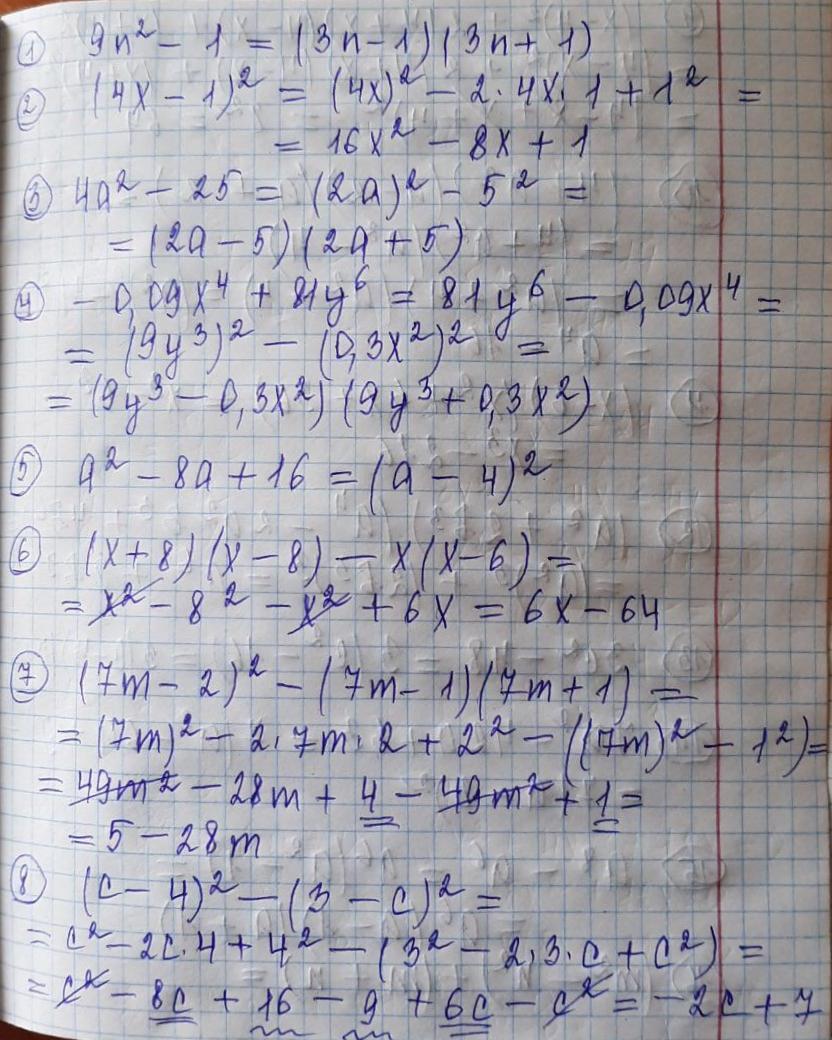 ① 9n² - 1 = (3n-1)(3n+1)
② (4x - 1)² = (4x)² - 2·4x·1 + 1² =
= 16x² - 8x + 1
③ 4a² - 25 = (2a)² - 5² =
= (2a - 5)(2a + 5)
④ - 0,09x⁴ + 81y⁶ = 81y⁶ - 0,09x⁴ =
= (9y³)² - (0,3x²)² =
= (9y³ - 0,3x²)(9y³ + 0,3x²)
⑤ a² - 8a + 16 = (a - 4)²
⑥ (x+8)(x-8) - x(x-6) =
= x² - 8² - x² + 6x = 6x - 64
⑦ (7m - 2)² - (7m - 1)(7m + 1) =
= (7m)² - 2·7m·2 + 2² - ((7m)² - 1²) =
= 49m² - 28m + 4 - 49m² + 1 =
= 5 - 28m
⑧ (c - 4)² - (3 - c)² =
= c² - 2c·4 + 4² - (3² - 2·3·c + c²) =
= c² - 8c + 16 - 9 + 6c - c² = -2c + 7